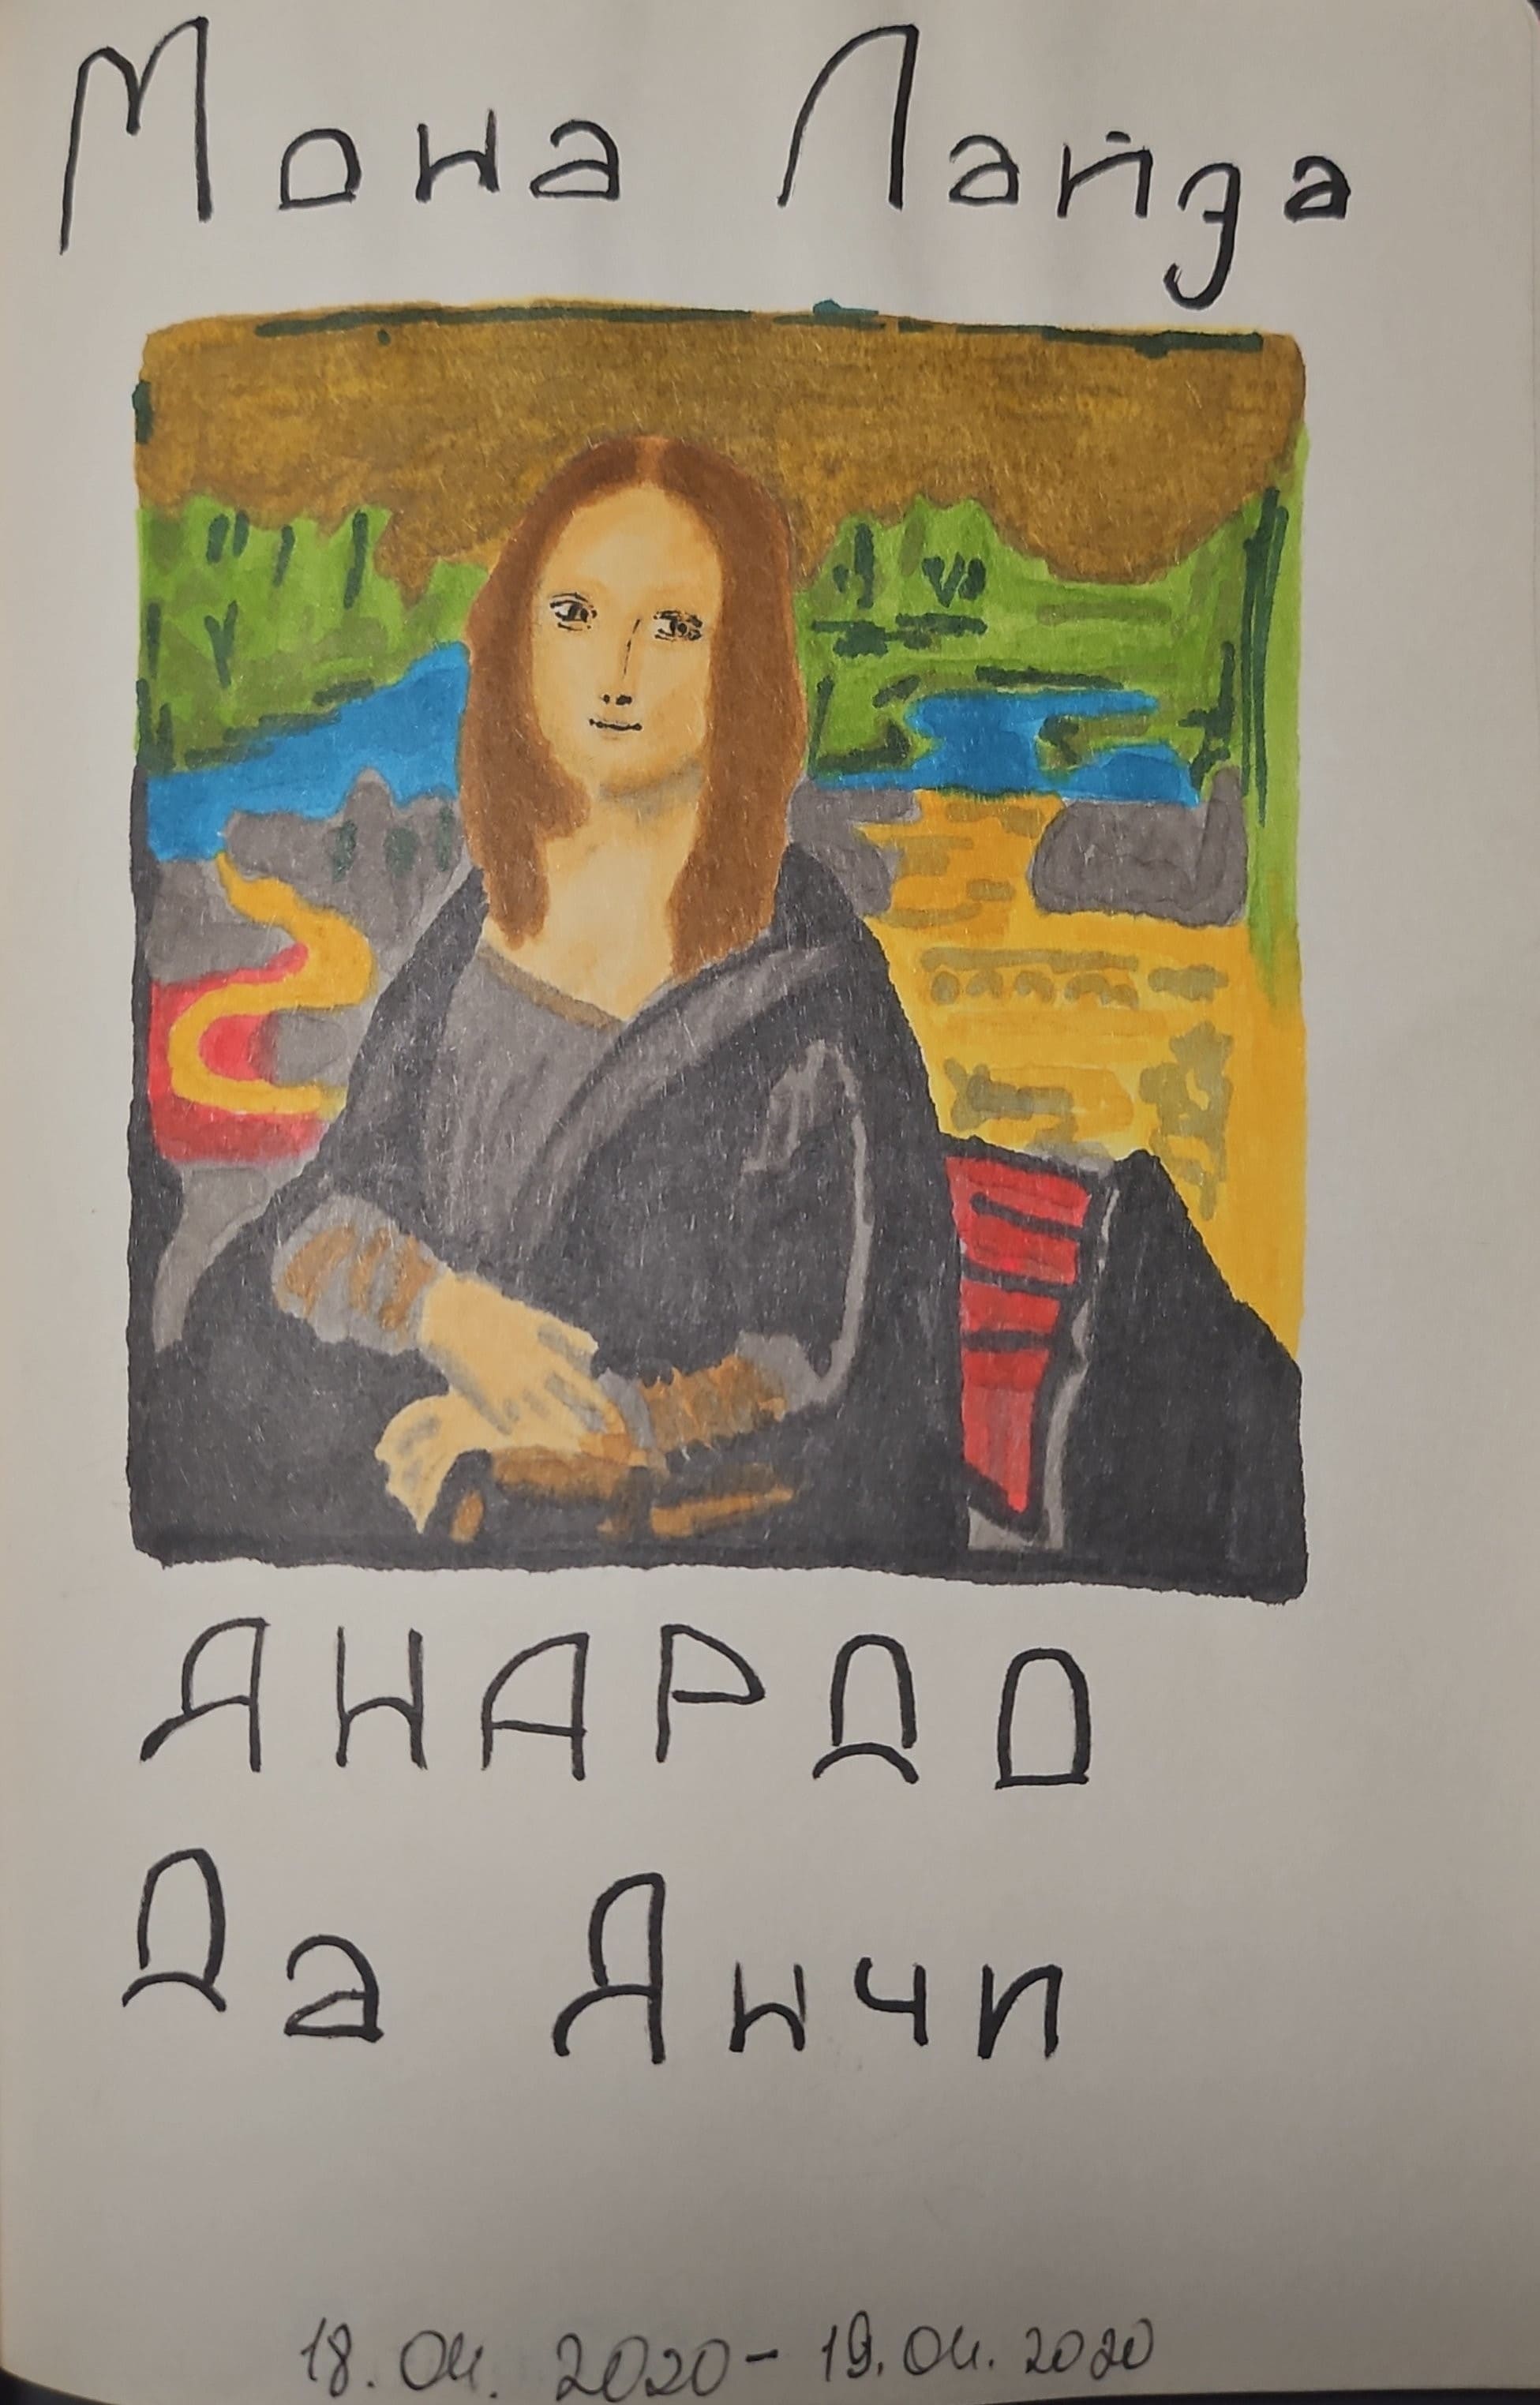 Мона Лайза
ЯНАРДО
Да Янчи
18.04.2020-19.04.2020